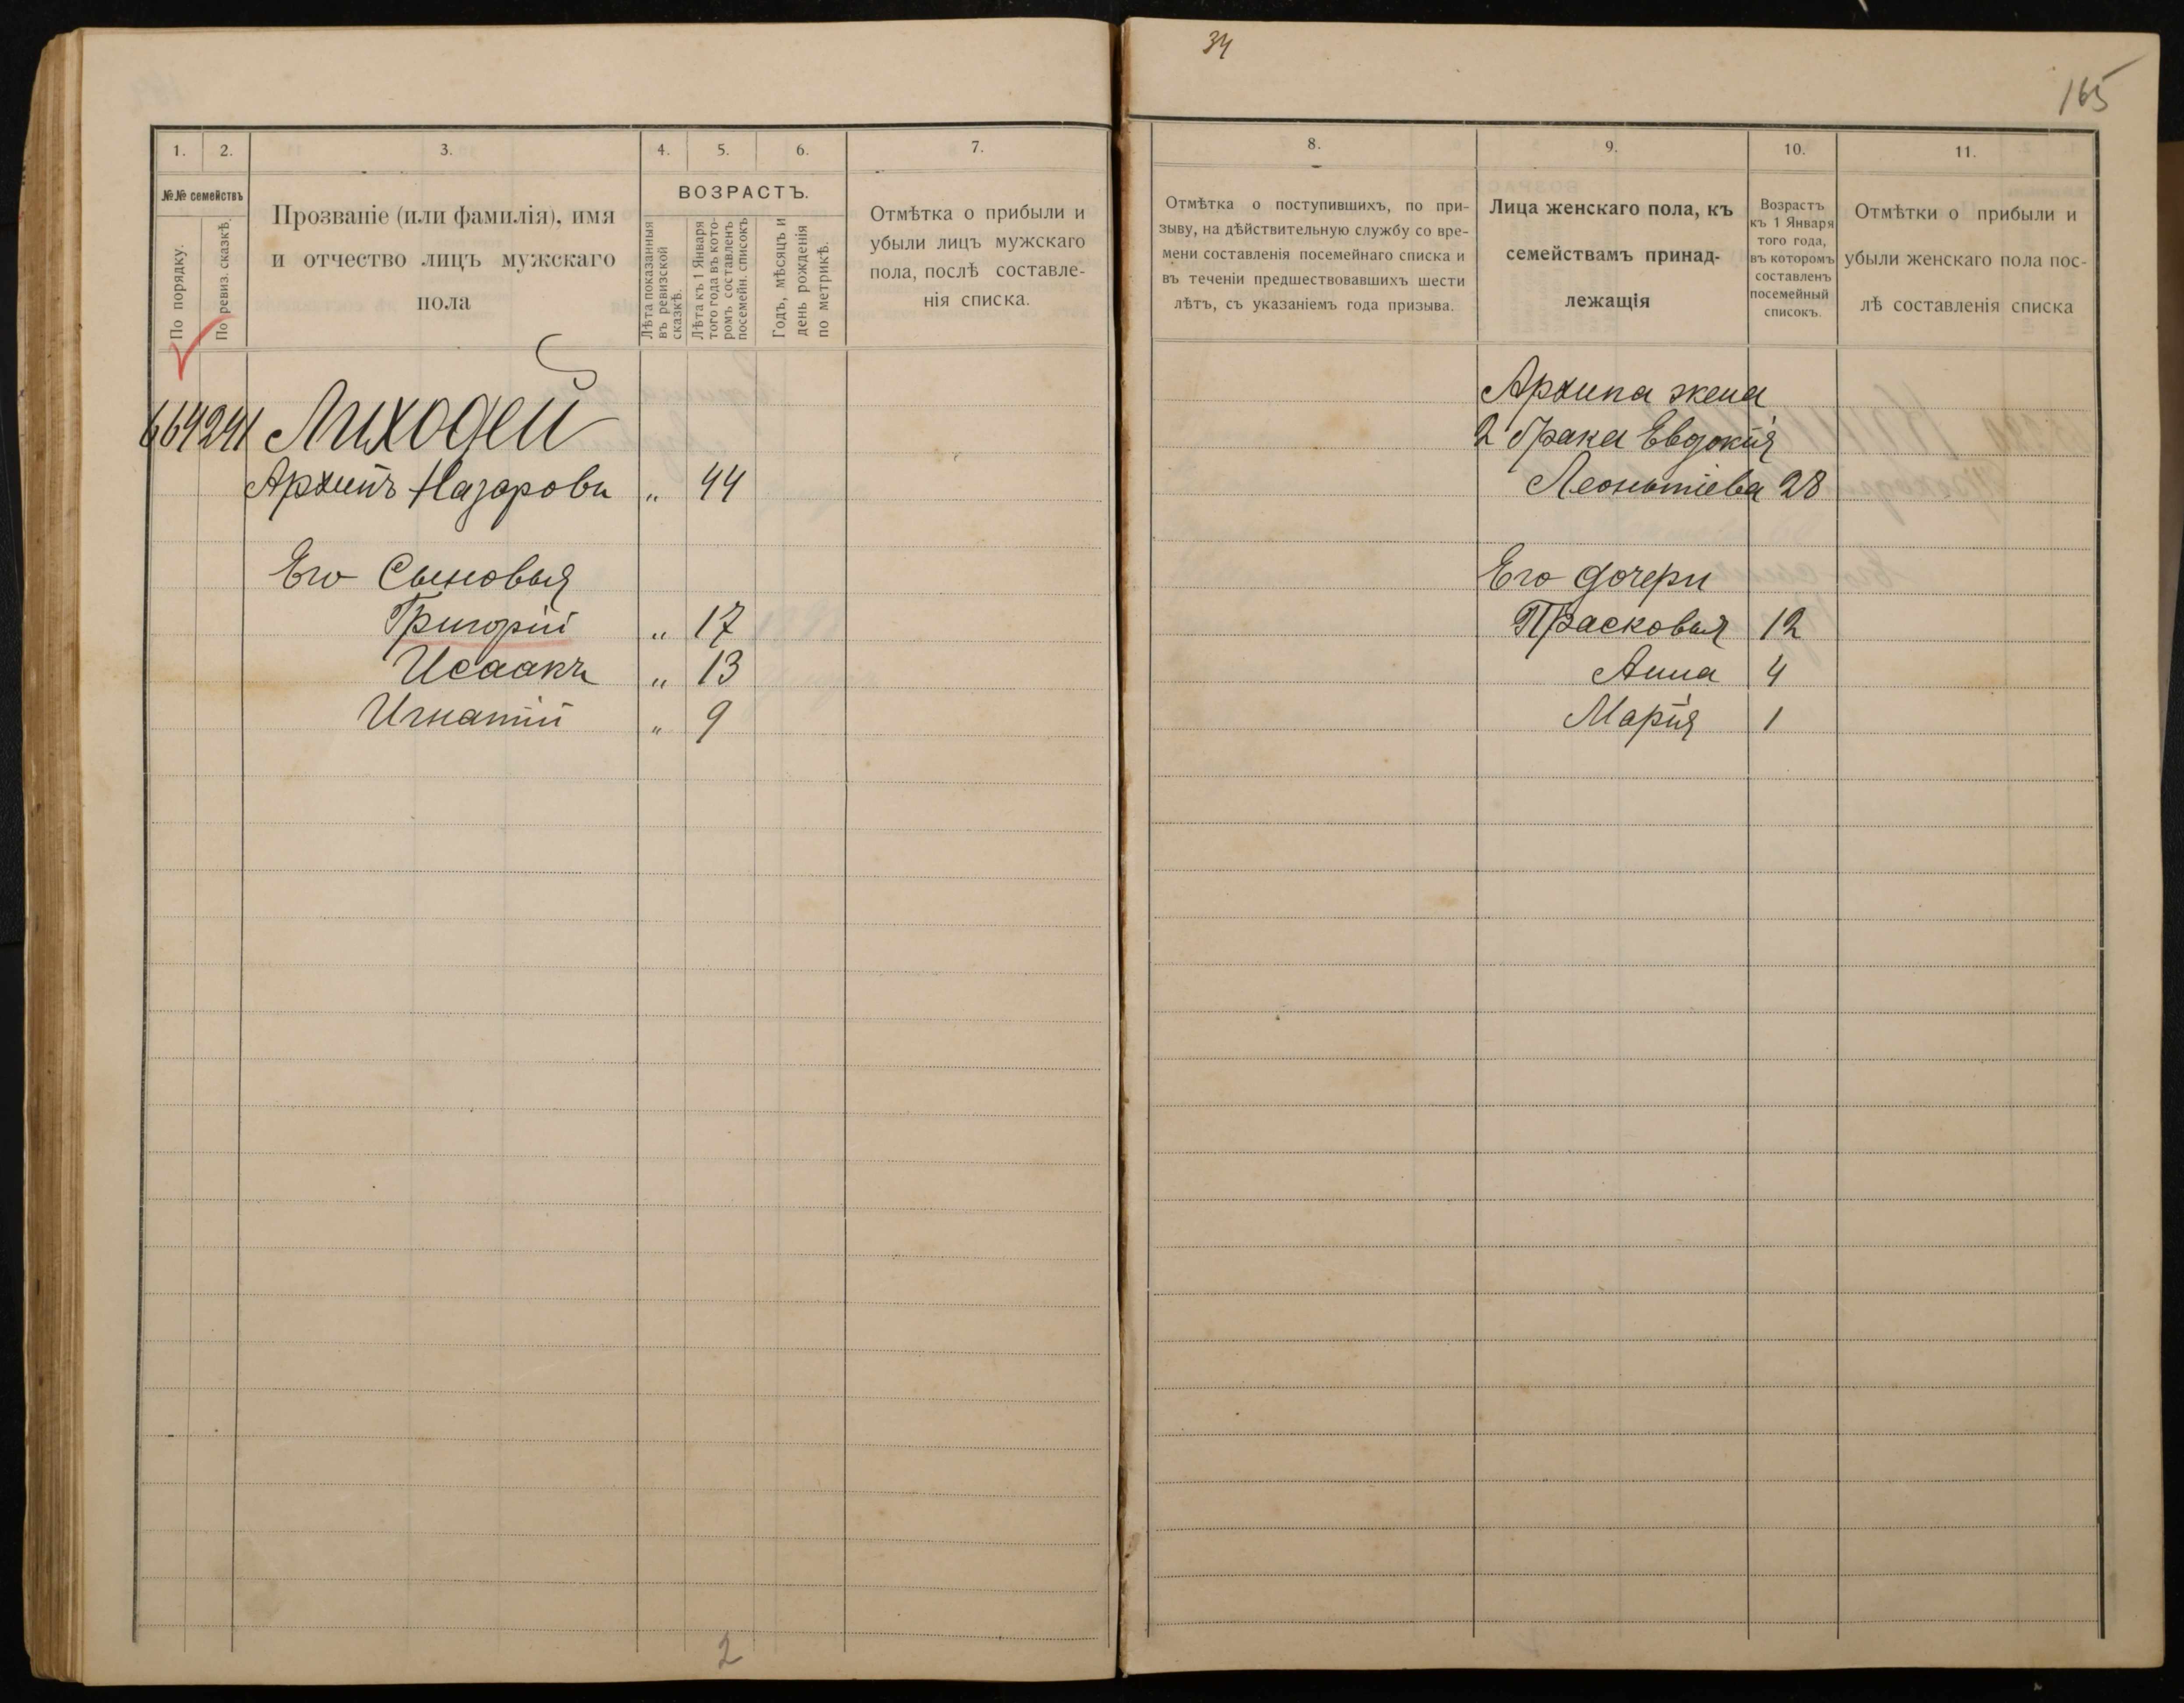 34
165
1.
2.
3.
4.
5.
6.
7.
№№ семействъ
По порядку.
По ревиз. сказкѣ.
Прозваніе (или фамилія), имя
и отчество лицъ мужскаго
пола
ВОЗРАСТЪ.
Лѣта показанныя
въ ревизской
сказкѣ.
Лѣта къ 1 Января
того года въ кото-
ромъ составленъ
посемейн. списокъ
Годъ, мѣсяцъ и
день рожденія
по метрикѣ.
Отмѣтка о прибыли и
убыли лицъ мужскаго
пола, послѣ составле-
нія списка.
664 241 Лиходей
Архипъ Назаровъ „ 44
Его Сыновья
Григорій „ 17
Исаакъ „ 13
Игнатій „ 9
2
8.
9.
10.
11.
Отмѣтка о поступившихъ, по при-
зыву, на дѣйствительную службу со вре-
мени составленія посемейнаго списка и
въ теченіи предшествовавшихъ шести
лѣтъ, съ указаніемъ года призыва.
Лица женскаго пола, къ
семействамъ принад-
лежащія
Возрастъ
къ 1 Января
того года,
въ которомъ
составленъ
посемейный
списокъ.
Отмѣтки о прибыли и
убыли женскаго пола пос-
лѣ составленія списка
Архипа жена
2 брака Евдокія
Леонтіева 28
Его дочери
Прасковья 12
Анна 4
Марія 1